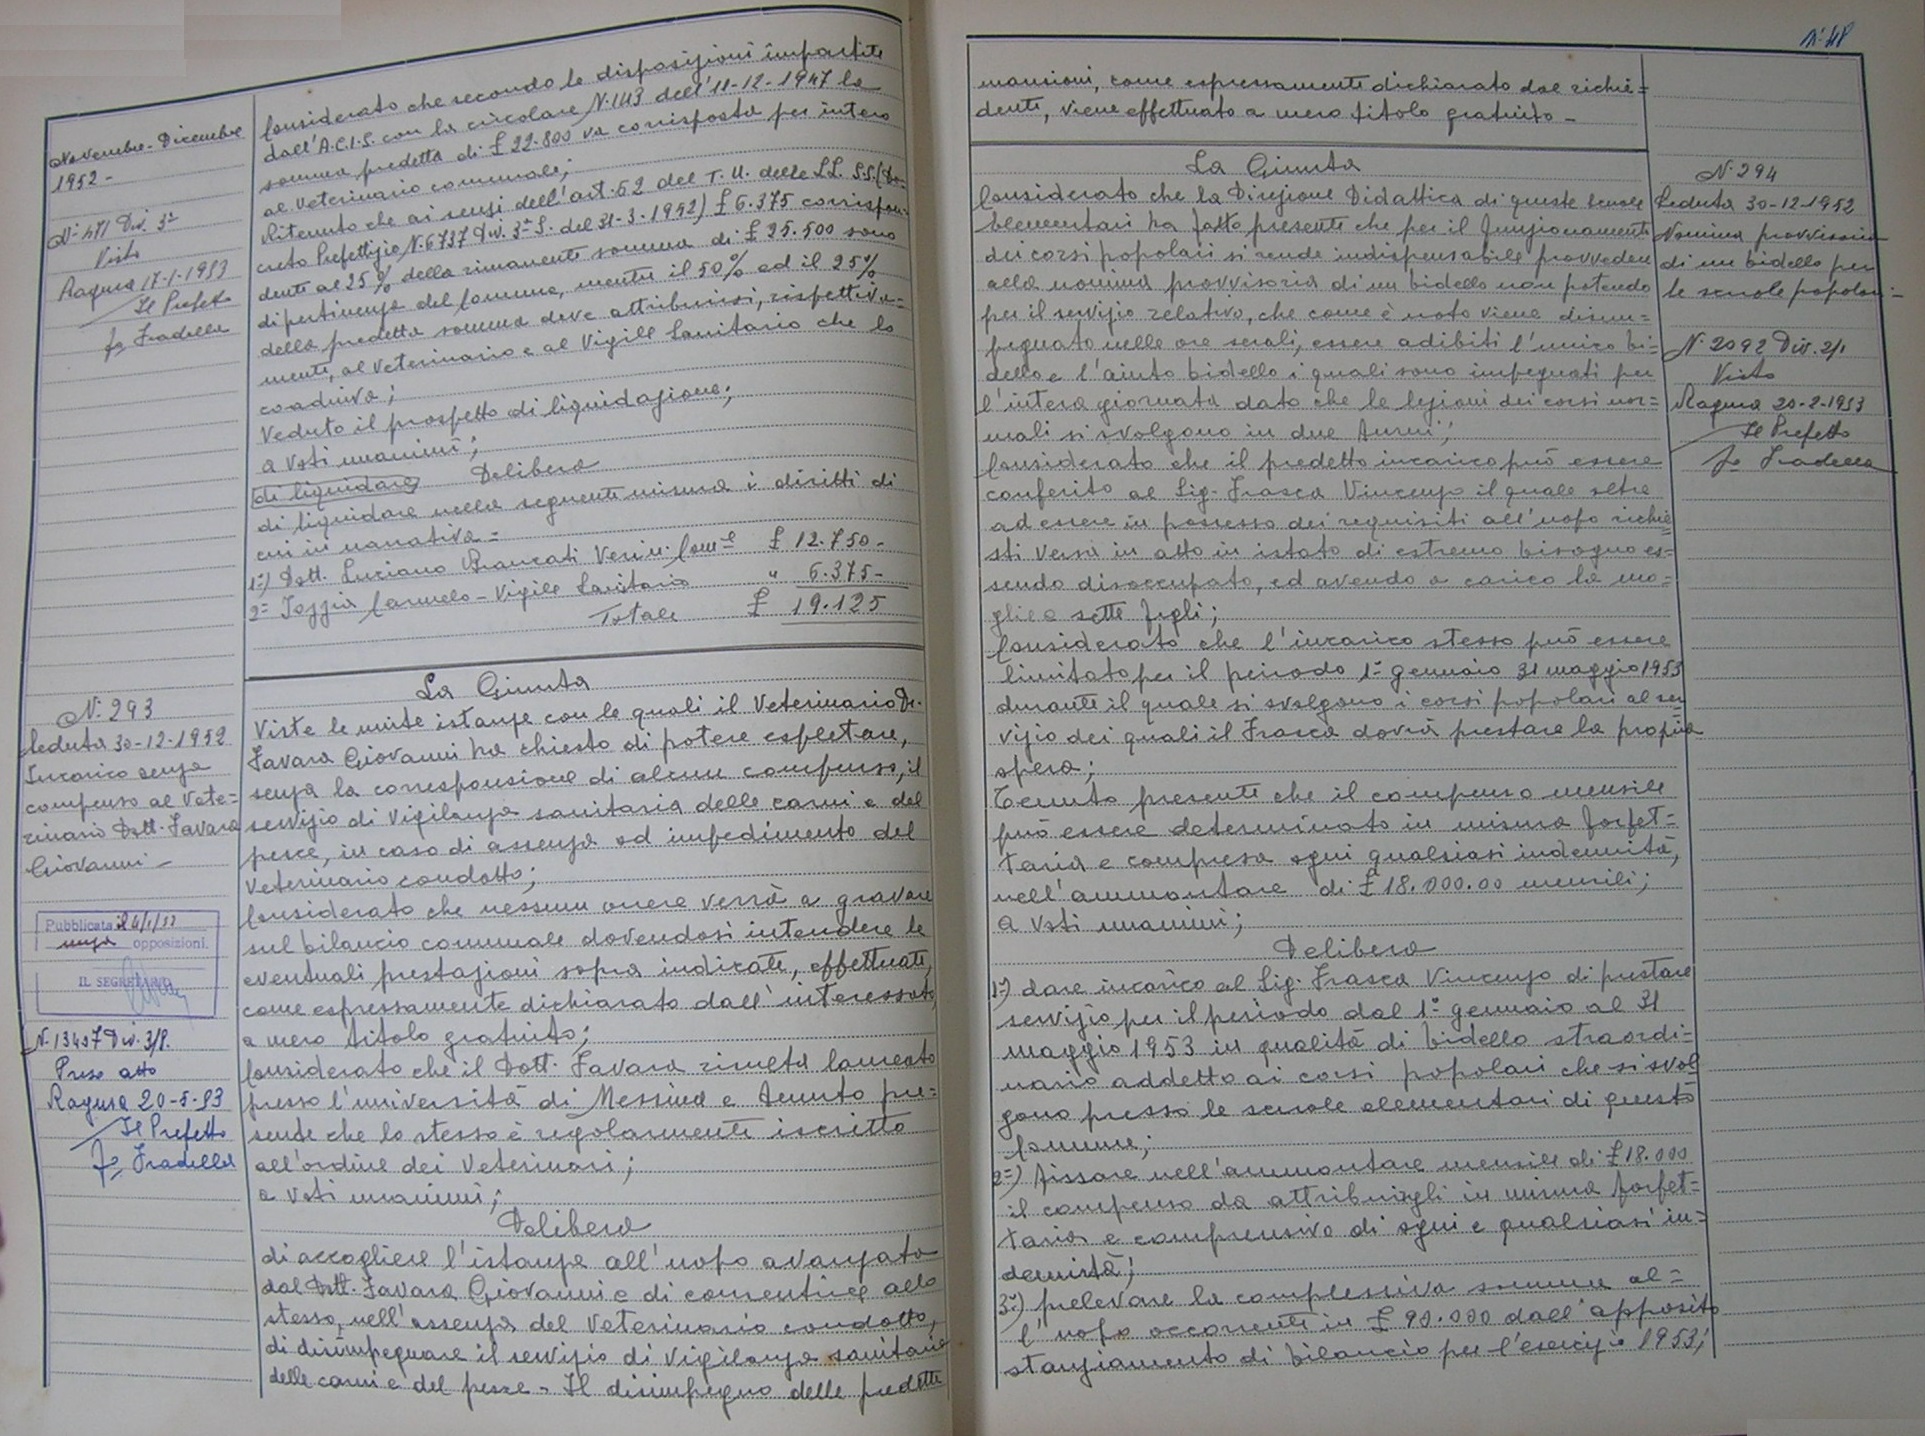 Novembre - Dicembre
1952 -
N. 471 Div. 3ª
Visto
Ragusa 17-1-1953
Il Prefetto
Considerato che secondo le disposizioni impartite
dall'A.C.I.S. con la circolare N. 143 dell'11-12-1947 la
somma predetta di £ 22.800 va corrisposta per intero
al Veterinario comunale;
Ritenuto che ai sensi dell'art. 62 del T.U. delle LL. SS. (De-
creto Prefettizio N. 6737 Div. 3ª S. del 31-3-1952) £ 6.375 corrispon-
denti al 25% della rimanente somma di £ 25.500 sono
di pertinenza del Comune, mentre il 50% ed il 25%
della predetta somma deve attribuirsi, rispettiva=
mente, al Veterinario e al Vigile Sanitario che lo
coadiuva;
Veduto il prospetto di liquidazione;
a voti unanimi;
Delibera
di liquidare
di liquidare nella seguente misura i diritti di
cui in narrativa =
1=) Dott. Luciano Brancati Verin. Com=le £ 12.750-
2= Carmelo - Vigile Sanitario " 6.375-
Totale £ 19.125
N. 293
Seduta 30-12-1952
Incarico senza
compenso al Vete=
rinario Dott. Favara
Giovanni -
Pubblicata il 4/1/53
senza opposizioni.
IL SEGRETARIO
N. 13497 Div. 3/S.
Preso atto
Ragusa 20-5-53
Il Prefetto
La Giunta
Viste le unite istanze con le quali il Veterinario Dr.
Favara Giovanni ha chiesto di potere espletare,
senza la corresponsione di alcun compenso, il
servizio di Vigilanza sanitaria delle carni e del
pesce, in caso di assenza od impedimento del
Veterinario condotto;
Considerato che nessun onere verrà a gravare
sul bilancio comunale dovendosi intendere le
eventuali prestazioni sopra indicate, effettuate,
come espressamente dichiarato dall'interessato,
a mero titolo gratuito;
Considerato che il Dott. Favara risulta laureato
presso l'università di Messina e tenuto pre=
sente che lo stesso è regolarmente iscritto
all'ordine dei Veterinari;
a voti unanimi;
Delibera
di accogliere l'istanza all'uopo avanzata
dal Dott. Favara Giovanni e di consentire allo
stesso, nell'assenza del Veterinario condotto,
di disimpegnare il servizio di Vigilanza sanitaria
delle carni e del pesce - Il disimpegno delle predette
N. 48
mansioni, come espressamente dichiarato dal richie=
dente, viene effettuato a mero titolo gratuito -
La Giunta
Considerato che la Direzione Didattica di queste scuole
elementari ha fatto presente che per il funzionamento
dei corsi popolari si rende indispensabile provvedere
alla nomina provvisoria di un bidello non potendo
per il servizio relativo, che come è noto viene disim=
pegnato nelle ore serali, essere adibiti l'unico bi=
dello e l'aiuto bidello i quali sono impegnati per
l'intera giornata dato che le lezioni dei corsi nor=
mali si svolgono in due turni;
Considerato che il predetto incarico può essere
conferito al Sig. Frasca Vincenzo il quale oltre
ad essere in possesso dei requisiti all'uopo richie=
sti versa in atto in istato di estremo bisogno es=
sendo disoccupato, ed avendo a carico la mo=
glie e sette figli;
Considerato che l'incarico stesso può essere
limitato per il periodo 1= gennaio 31 maggio 1953
durante il quale si svolgono i corsi popolari al ser
vizio dei quali il Frasca dovrà prestare la propria
opera;
Tenuto presente che il compenso mensile
può essere determinato in misura forfet=
taria e compresa ogni qualsiasi indennità,
nell'ammontare di £ 18.000.00 mensili;
a voti unanimi;
Delibera
1=) dare incarico al Sig. Frasca Vincenzo di prestare
servizio per il periodo dal 1° gennaio al 31
maggio 1953 in qualità di bidello straordi-
nario addetto ai corsi popolari che si svol
gono presso le scuole elementari di questo
Comune;
2=) fissare nell'ammontare mensile di £ 18.000
il compenso da attribuirgli in misura forfet=
taria e comprensivo di ogni e qualsiasi in=
dennità;
3=) prelevare la complessiva somma al=
l'uopo occorrente in £ 90.000 dall'apposito
stanziamento di bilancio per l'esercizio 1953;
N. 294
Seduta 30-12-1952
Nomina provvisoria
di un bidello per
le scuole popolari -
N. 2092 Div. 2/1
Visto
Ragusa 20-2-1953
Il Prefetto